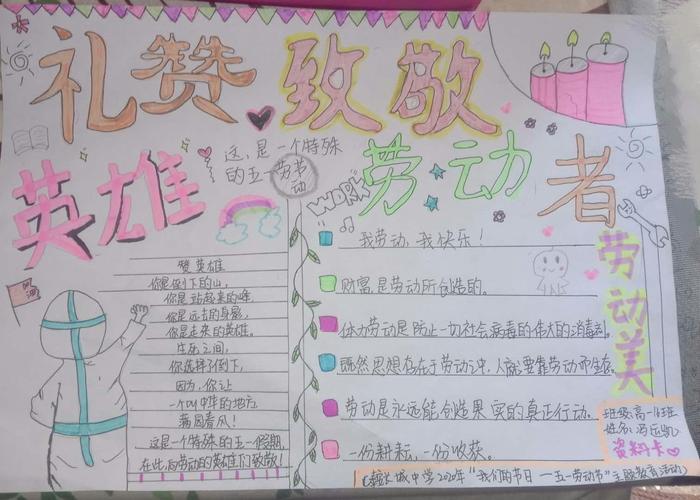 礼赞 致敬
英雄
劳动者
这,是一个特殊
的五一劳节
动
WORK
赞英雄
你是倒下的山,
你是站起来的峰,
你是远去的身影,
你是走来的英雄。
生死之间,
你选择了倒下,
因为,你让
一个叫中华的地方
满园春风!
这是一个特殊的五一假期,
在此,向劳动的英雄们致敬!
加油
我劳动,我快乐!
财富是劳动所创造的。
体力劳动是防止一切社会病毒的伟大的消毒剂。
既然思想存在于劳动之中,人就要靠劳动而生存。
劳动是永远能创造果实的真正行动。
一份耕耘,一份收获。
劳动美
班级:高一
姓名:冯
资料卡
城中学 "我们的节日 一 五一劳动节"主题教育活动